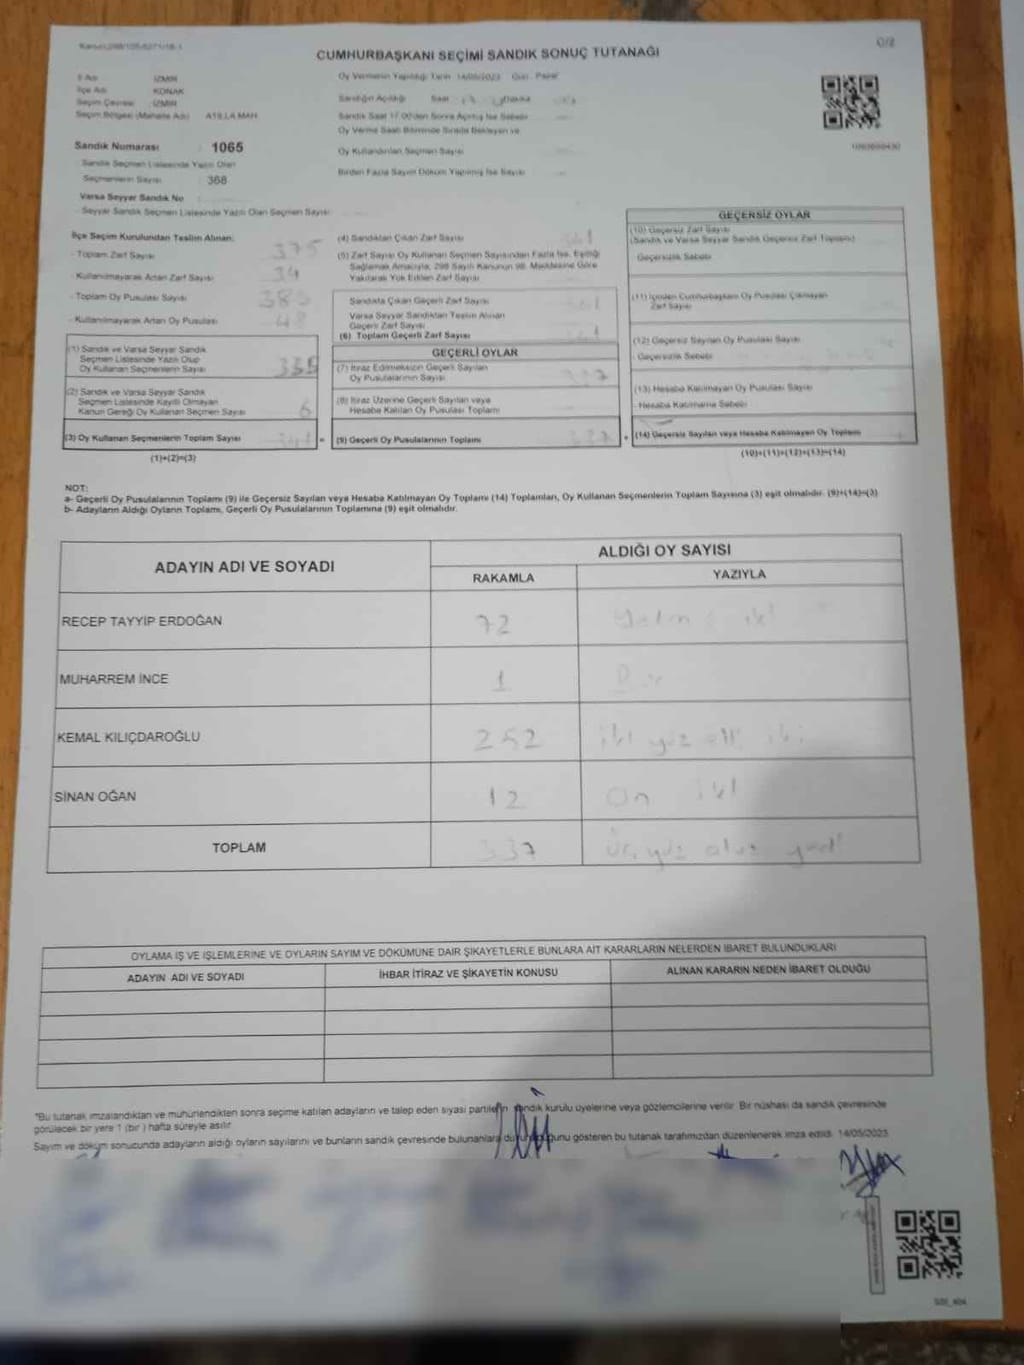 CUMHURBAŞKANI SEÇİMİ SANDIK SONUÇ TUTANAĞI
İl Adı İZMİR
İlçe Adı KONAK
Seçim Çevresi İZMİR
Seçim Bölgesi (Mahalle Adı) ATİLLA MAH.
Sandık Numarası : 1065
Sandık Seçmen Listesinde Yazılı Olan
Seçmenlerin Sayısı : 368
Varsa Seyyar Sandık No
- Seyyar Sandık Seçmen Listesinde Yazılı Olan Seçmen Sayısı
Oy Vermenin Yapıldığı Tarih 14/05/2023 Gün : Pazar
Sandığın Açıldığı Saat Dakika
Sandık Saat 17.00'den Sonra Açılmış İse Sebebi
Oy Verme Saati Bitiminde Sırada Bekleyen ve
Oy Kullandırılan Seçmen Sayısı
Birden Fazla Sayım Döküm Yapılmış İse Sayısı
İlçe Seçim Kurulundan Teslim Alınan:
- Toplam Zarf Sayısı 375
- Kullanılmayarak Artan Zarf Sayısı 34
- Toplam Oy Pusulası Sayısı 385
- Kullanılmayarak Artan Oy Pusulası 48
(1) Sandık ve Varsa Seyyar Sandık
Seçmen Listesinde Yazılı Olup
Oy Kullanan Seçmenlerin Sayısı 335
(2) Sandık ve Varsa Seyyar Sandık
Seçmen Listesinde Kayıtlı Olmayan
Kanun Gereği Oy Kullanan Seçmen Sayısı 6
(3) Oy Kullanan Seçmenlerin Toplam Sayısı 341
(1)+(2)=(3)
(4) Sandıktan Çıkan Zarf Sayısı 341
(5) Zarf Sayısı Oy Kullanan Seçmen Sayısından Fazla İse, Eşitliği
Sağlamak Amacıyla, 298 Sayılı Kanunun 98. Maddesine Göre
Yakılarak Yok Edilen Zarf Sayısı
Sandıkta Çıkan Geçerli Zarf Sayısı
Varsa Seyyar Sandıktan Teslim Alınan
Geçerli Zarf Sayısı
(6) Toplam Geçerli Zarf Sayısı
GEÇERLİ OYLAR
(7) İtiraz Edilmeksizin Geçerli Sayılan
Oy Pusulalarının Sayısı 337
(8) İtiraz Üzerine Geçerli Sayılan veya
Hesaba Katılan Oy Pusulası Toplamı
(9) Geçerli Oy Pusulalarının Toplamı 337
GEÇERSİZ OYLAR
(10) Geçersiz Zarf Sayısı
(Sandık ve Varsa Seyyar Sandık Geçersiz Zarf Toplamı)
Geçersizlik Sebebi
(11) İçinden Cumhurbaşkanı Oy Pusulası Çıkmayan
Zarf Sayısı
(12) Geçersiz Sayılan Oy Pusulası Sayısı
- Geçersizlik Sebebi
(13) Hesaba Katılmayan Oy Pusulası Sayısı
- Hesaba Katılmama Sebebi
(14) Geçersiz Sayılan veya Hesaba Katılmayan Oy Toplamı
(10)+(11)+(12)+(13)=(14)
NOT:
a- Geçerli Oy Pusulalarının Toplamı (9) ile Geçersiz Sayılan veya Hesaba Katılmayan Oy Toplamı (14) Toplamları, Oy Kullanan Seçmenlerin Toplam Sayısına (3) eşit olmalıdır. (9)+(14)=(3)
b- Adayların Aldığı Oyların Toplamı, Geçerli Oy Pusulalarının Toplamına (9) eşit olmalıdır.
ADAYIN ADI VE SOYADI ALDIĞI OY SAYISI
RAKAMLA YAZIYLA
RECEP TAYYİP ERDOĞAN 72 Yetmiş iki
MUHARREM İNCE 1 Bir
KEMAL KILIÇDAROĞLU 252 iki yüz elli iki
SİNAN OĞAN 12 On iki
TOPLAM 337 Üç yüz otuz yedi
OYLAMA İŞ VE İŞLEMLERİNE VE OYLARIN SAYIM VE DÖKÜMÜNE DAİR ŞİKAYETLERLE BUNLARA AİT KARARLARIN NELERDEN İBARET BULUNDUKLARI
ADAYIN ADI VE SOYADI İHBAR İTİRAZ VE ŞİKAYETİN KONUSU ALINAN KARARIN NEDEN İBARET OLDUĞU
*Bu tutanak imzalandıktan ve mühürlendikten sonra seçime katılan adayların ve talep eden siyasi partilerin sandık kurulu üyelerine veya gözlemcilerine verilir. Bir nüshası da sandık çevresinde
görülecek bir yere 1 (bir) hafta süreyle asılır.
Sayım ve döküm sonucunda adayların aldığı oyların sayılarını ve bunların sandık çevresinde bulunanlara duyurulduğunu gösteren bu tutanak tarafımızdan düzenlenerek imza edildi. 14/05/2023